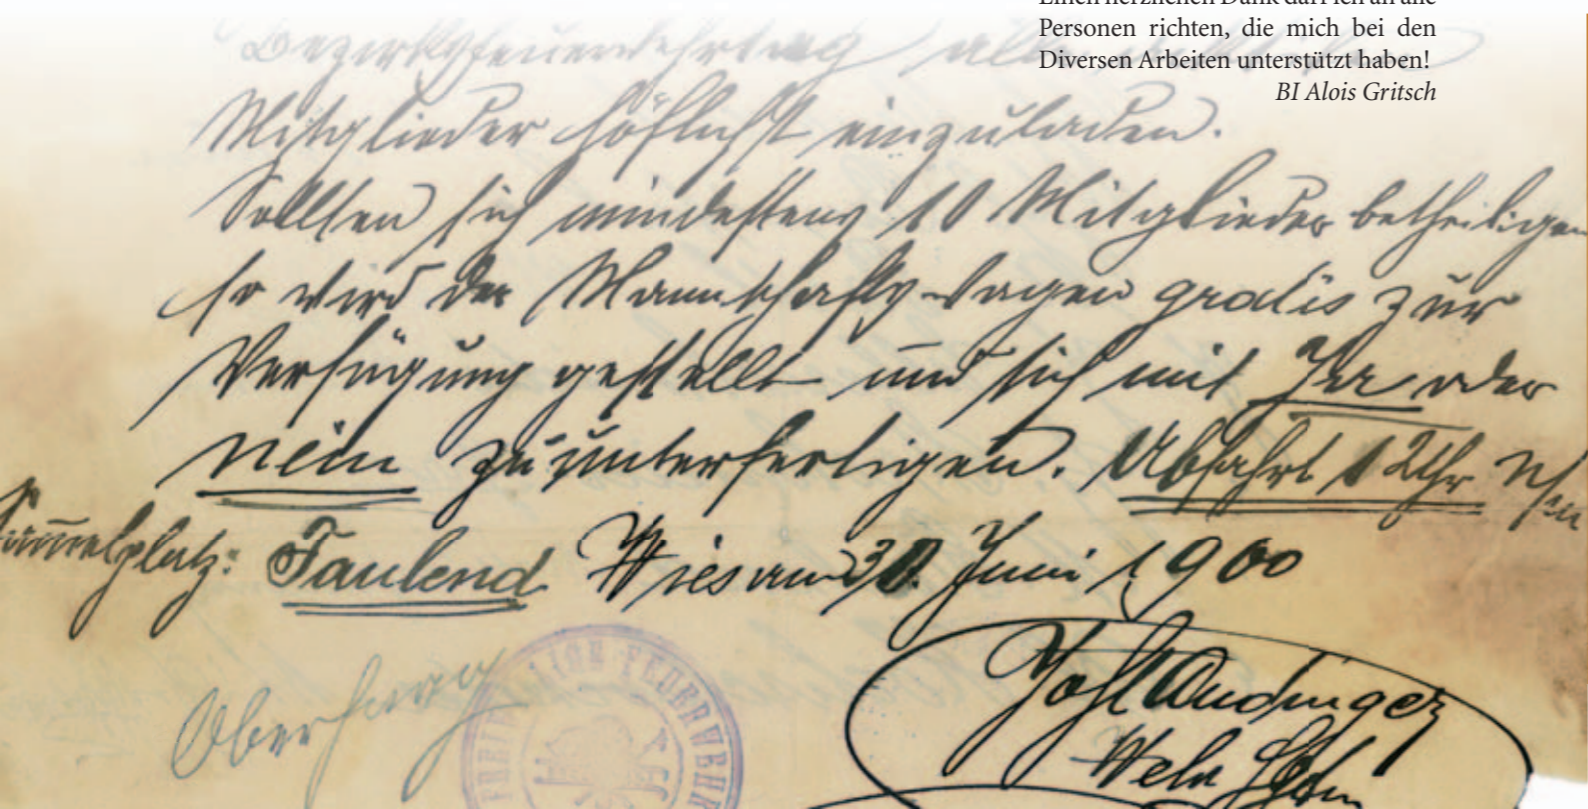 Einen herzlichen Dank darf ich an alle
Personen richten, die mich bei den
Diversen Arbeiten unterstützt haben!
BI Alois Gritsch
Bezirksfeuerwehrtag
Mitglieder höflichst einzuladen.
Sollten sich mindestens 10 Mitglieder betheiligen
so wird der Mannschafts-wagen gratis zur
Verfügung gestellt und sich mit Ja oder
Nein zu unterfertigen. Abfahrt 12 Uhr
Sammelplatz: Taulend Wies am 30. Juni 1900
FREIW. FEUERWEHR